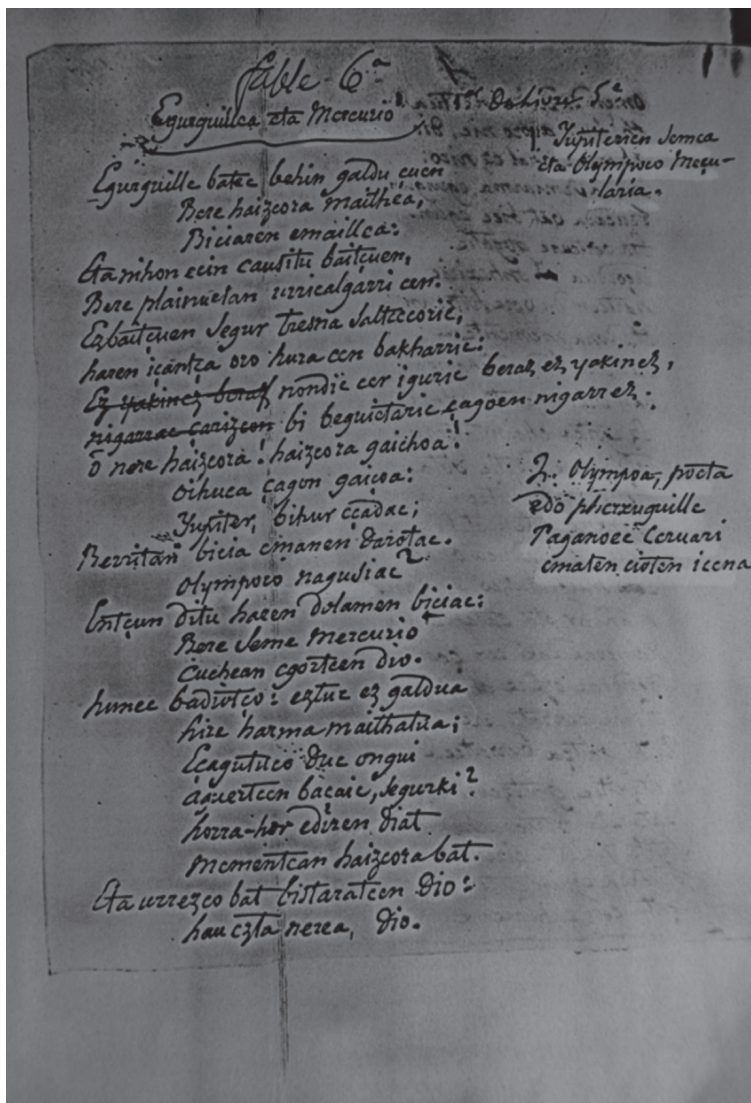 fable 6.ª
Egurguillea eta Mercurio¹
1. Jupiterien Semea
eta Olympoco Meçu-
laria.
Egurguille batec behin galdu çuen
Bere haizcora maithea,
Biciaren emaillea:
Eta nihon ecin causitu baitçuen,
Bere plainuetan urricalgarri cen.
Ezbaitçuen segur tresna saltcecoric,
haren içantça oro hura cen bakharric:
Ez yakinez beraz nondic cer iguric beraz ez yakinez,
nigarrac çarizcon bi beguietaric çagoen nigarrez.
ô nere haizcora! haizcora gaichoa!
oihuca çagon gaiçoa:
Jupiter, bihur eçadac;
Berritan bicia emanen darotac.
Olympoco nagusiac²
Entçun ditu haren dolamen biciac:
Bere Seme Mercurio
Cuchean egortcen dio.
hunec badiotço: eztuc ez galdua
hire harma maithatua;
Eçagutuco duc ongui
aguertcen baçaic, segurki?
horra-hor ediren diat
momentean haizcora bat.
Eta urrezco bat bistaratcen dio:
hau ezta nerea, dio.
2. Olympoa, poeta
edo phertzuguille
Paganoec Ceruari
ematen cioten icena